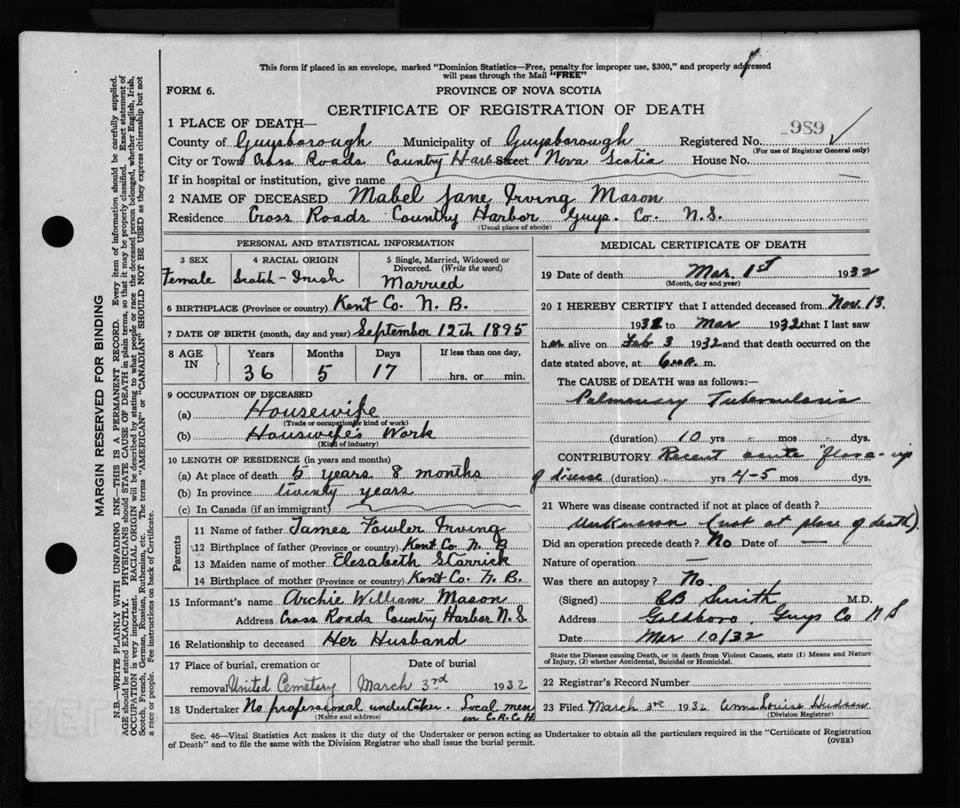 This form if placed in an envelope, marked "Dominion Statistics—Free, penalty for improper use, $300," and properly addressed
will pass through the Mail "FREE"
FORM 6.
PROVINCE OF NOVA SCOTIA
CERTIFICATE OF REGISTRATION OF DEATH
989
1 PLACE OF DEATH—
County of Guysborough Municipality of Guysborough Registered No.
(For use of Registrar General only)
City or Town Cross Roads Country Harb Street Nova Scotia House No.
If in hospital or institution, give name
2 NAME OF DECEASED Mabel Jane Irving Mason
Residence Cross Roads Country Harbor Guys. Co. N.S.
(Usual place of abode)
PERSONAL AND STATISTICAL INFORMATION
3 SEX
Female
4 RACIAL ORIGIN
Scotch-Irish
5 Single, Married, Widowed or
Divorced. (Write the word)
Married
6 BIRTHPLACE (Province or country) Kent Co. N. B.
7 DATE OF BIRTH (month, day and year) September 12th 1895
8 AGE IN
Years Months Days If less than one day,
36 5 17 hrs. or min.
9 OCCUPATION OF DECEASED
(a) Housewife
(Trade or occupation or kind of work)
(b) Housewife's Work
(Kind of industry)
10 LENGTH OF RESIDENCE (in years and months)
(a) At place of death 5 years 8 months
(b) In province twenty years
(c) In Canada (if an immigrant)
Parents
11 Name of father James Fowler Irving
12 Birthplace of father (Province or country) Kent Co N. B
13 Maiden name of mother Elesabeth Starrick
14 Birthplace of mother (Province or country) Kent Co. N. B.
15 Informant's name Archie William Mason
Address Cross Roads Country Harbor N.S.
16 Relationship to deceased Her Husband
17 Place of burial, cremation or
removal United Cemetery
Date of burial
March 3rd 1932
18 Undertaker No professional undertaker. Local men
in C.R.C.H.
(Name and address)
MEDICAL CERTIFICATE OF DEATH
19 Date of death Mar. 1st 1932
(Month, day and year)
20 I HEREBY CERTIFY that I attended deceased from Nov. 13.
to Mar 1932 that I last saw
h er alive on Feb 3 1932 and that death occurred on the
date stated above, at 6 a. m.
The CAUSE of DEATH was as follows:—
Pulmonary Tuberculosis
(duration) 10 yrs mos dys.
CONTRIBUTORY Recent acute "flare-up
of disease (duration) yrs 4-5 mos dys.
21 Where was disease contracted if not at place of death?
Unknown (not at place of death).
Did an operation precede death? No Date of —
Nature of operation —
Was there an autopsy? No.
(Signed) CB Smith M.D.
Address Goldboro, Guys Co NS
Date Mar 10/32
State the Disease causing Death, or in death from Violent Causes, state (1) Means and Nature
of Injury, (2) whether Accidental, Suicidal or Homicidal.
22 Registrar's Record Number
23 Filed March 3rd 1932 Anna Louise Hudson
(Division Registrar)
Sec. 46—Vital Statistics Act makes it the duty of the Undertaker or person acting as Undertaker to obtain all the particulars required in the "Certificate of Registration
of Death" and to file the same with the Division Registrar who shall issue the burial permit.
(OVER)
MARGIN RESERVED FOR BINDING
N.B.—WRITE PLAINLY WITH UNFADING INK—THIS IS A PERMANENT RECORD. Every item of information should be carefully supplied.
AGE should be stated EXACTLY. PHYSICIANS should STATE CAUSE OF DEATH in plain terms, so that it may be properly classified. Exact statement of
OCCUPATION is very important. RACIAL ORIGIN will be described by stating to what people or race the deceased person belonged, whether English, Irish,
Scotch, French, German, Russian, Ruthenian, etc. The terms "AMERICAN" or "CANADIAN" SHOULD NOT BE USED as they express citizenship but not
a race or people. See instructions on back of Certificate.